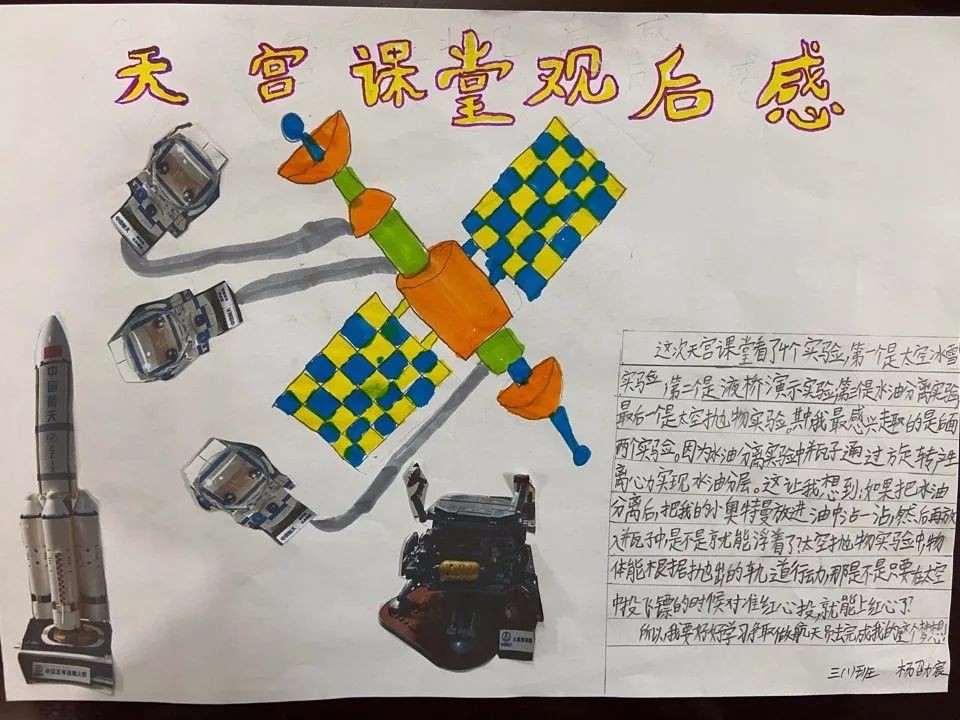 天宫课堂观后感
中国航天
长征五号运载火箭
这次天宫课堂看了4个实验,第一个是太空冰雪
实验,第二个是液桥演示实验,第三是水油分离实验
最后一个是太空抛物实验。其中我最感兴趣的是后面
两个实验。因为水油分离实验中瓶子通过旋转产生
离心力实现水油分层。这让我想到,如果把水油
分离后,把我的小奥特曼放进油中沾一沾,然后再放
入瓶子中是不是就能浮着了?太空抛物实验中物
体能根据抛出的轨道行动,那是不是只要在太空
中投飞镖的时候对准红心投,就能上红心了?
所以,我要好好学习,争取做航天员去完成我的这个梦想!
三(1)班 杨劭宸